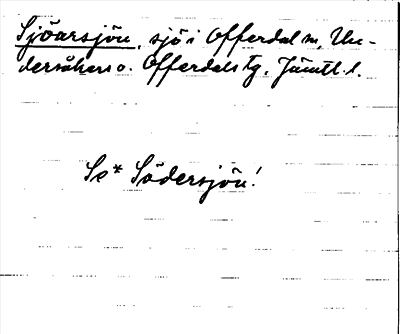 Sjöarsjön, sjö i Offerdal sn, Un-
dersåkers o. Offerdals tg. Jämtl. l.
Se* Södersjön!